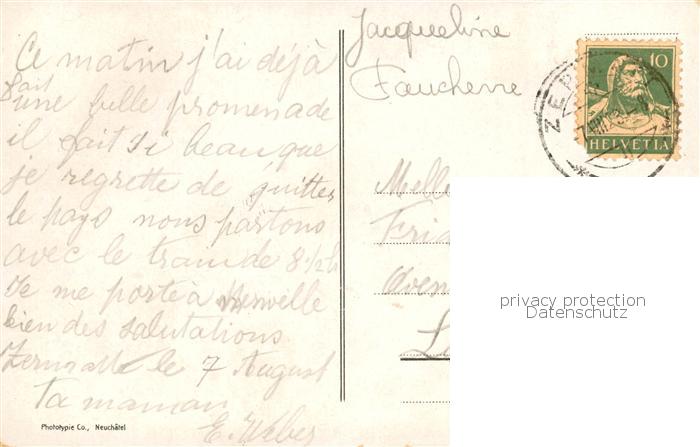 Ce matin j'ai déjà
fait
une belle promenade
il fait si beau, que
je regrette de quitter
le pays nous partons
avec le train de 8 1/2 h
Je me porte à merveille
bien des salutations
Zermatt le 7 August
Ta maman
E. Weber
Phototypie Co., Neuchâtel
Jacqueline
Faucherre
10
HELVETIA
ZER
Melle
Frid
Aven
L
privacy protection
Datenschutz